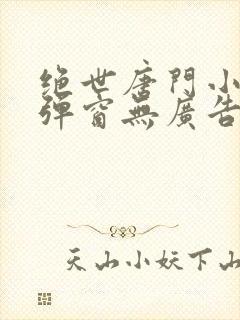 绝世唐門小
彈窗無廣告
天山小妖下山